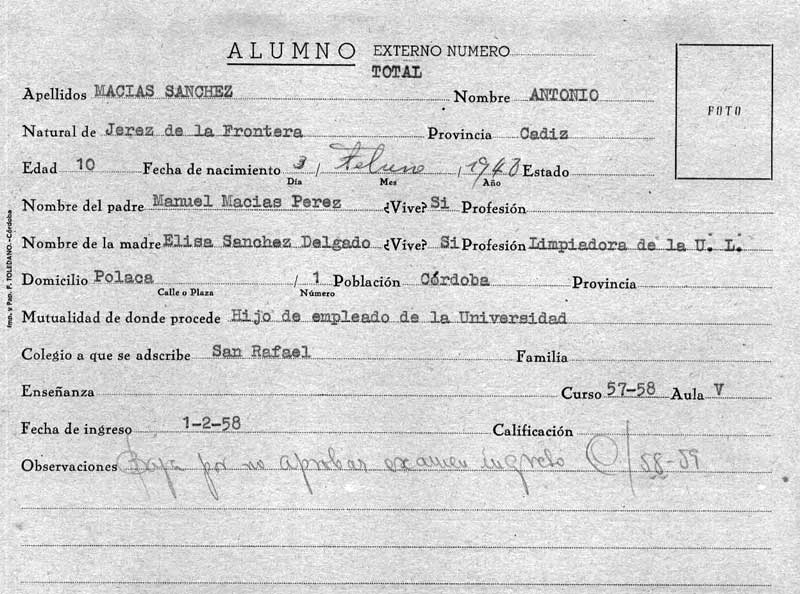 ALUMNO EXTERNO NUMERO
TOTAL
Apellidos MACIAS SANCHEZ Nombre ANTONIO
FOTO
Natural de Jerez de la Frontera Provincia Cadiz
Edad 10 Fecha de nacimiento 3 / Febrero / 1948 Estado
Día Mes Año
Nombre del padre Manuel Macias Perez ¿Vive? Si Profesión
Nombre de la madre Elisa Sanchez Delgado ¿Vive? Si Profesión Limpiadora de la U. L.
Domicilio Polaca / 1 Población Córdoba Provincia
Calle o Plaza Número
Mutualidad de donde procede Hijo de empleado de la Universidad
Colegio a que se adscribe San Rafael Familia
Enseñanza Curso 57-58 Aula V
Fecha de ingreso 1-2-58 Calificación
Observaciones Baja por no aprobar examen ingreso C/ 58-59
Imp. y Pap. F. TOLEDANO.-Córdoba